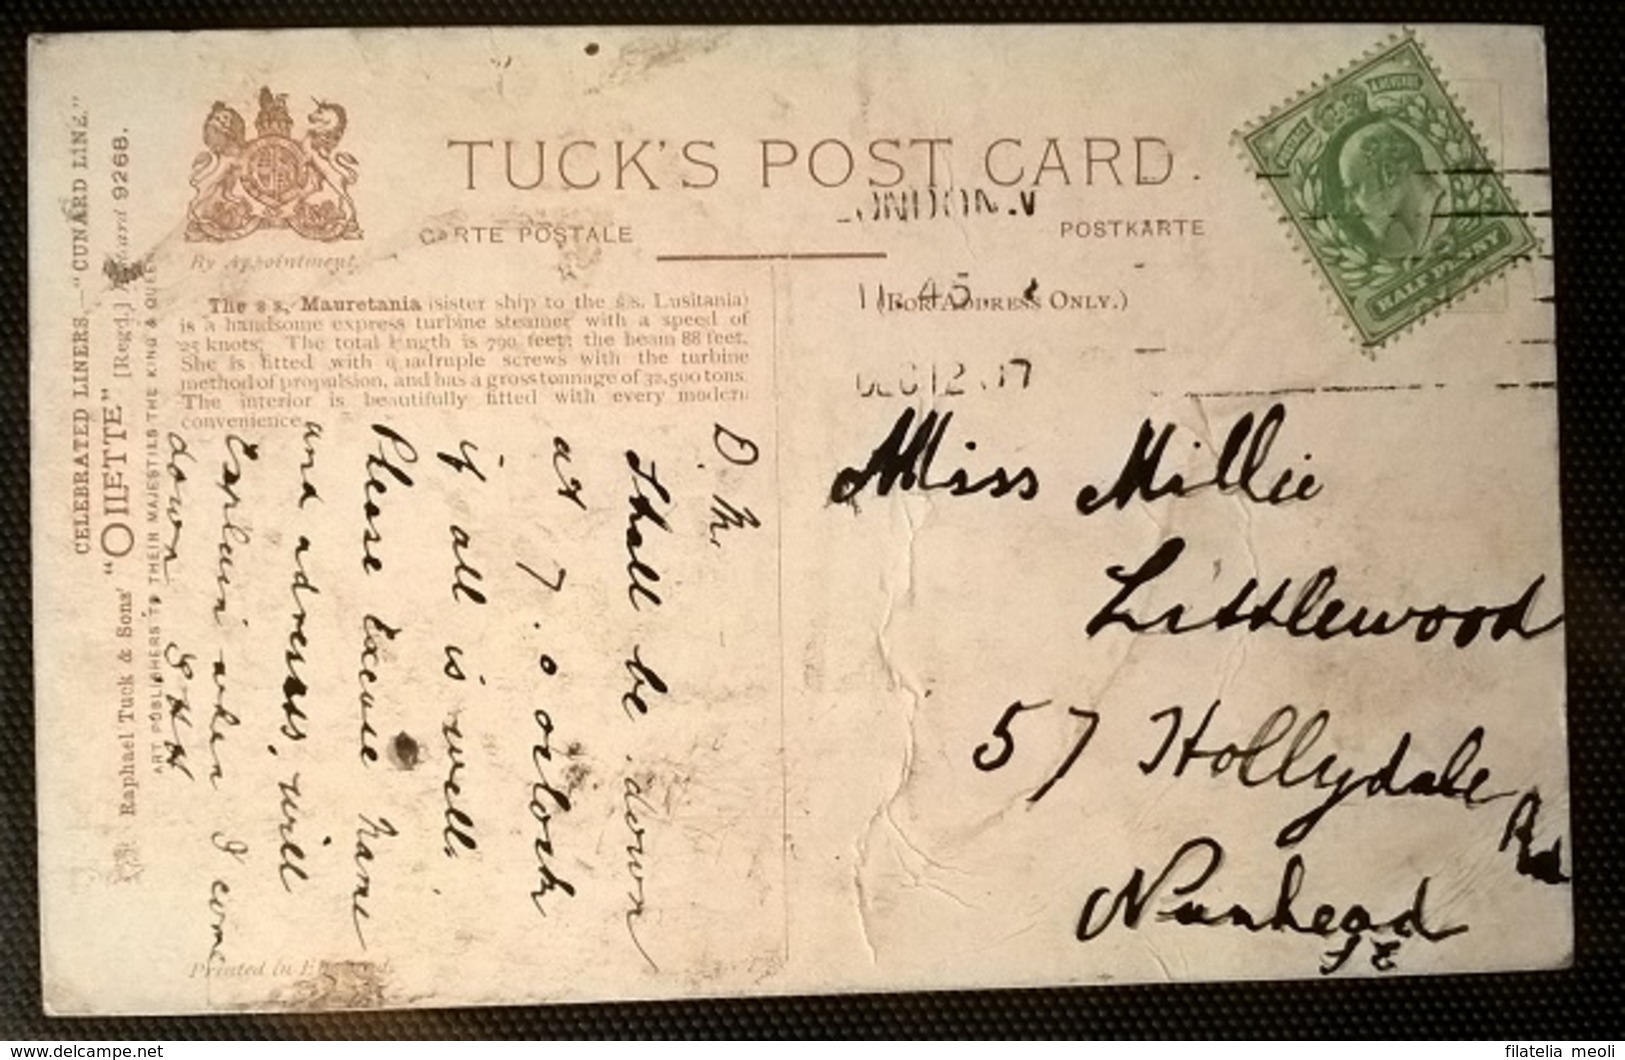 CELEBRATED LINERS.—"CUNARD LINE."
Raphael Tuck & Sons' "OILETTE" [Regd.] Postcard 9268.
ART PUBLISHERS TO THEIR MAJESTIES THE KING & QUEEN
By Appointment.
TUCK'S POST CARD.
CARTE POSTALE
POSTKARTE
(FOR ADDRESS ONLY.)
The s s, Mauretania (sister ship to the s.s. Lusitania)
is a handsome express turbine steamer with a speed of
25 knots. The total length is 790 feet; the beam 88 feet.
She is fitted with quadruple screws with the turbine
method of propulsion, and has a gross tonnage of 32,500 tons.
The interior is beautifully fitted with every modern
convenience.
LONDON.W
11.45.
DEC 12 07
POSTAGE
& REVENUE
HALFPENNY
D. M.
Shall be down
at 7. o oclock
if all is well.
Please Excuse Name
and adresss, will
Explain when I come
down
Miss Millie
Littlewood
57 Hollydale Rd
Nunhead
S E
Printed in England.
delcampe.net
filatelia meoli